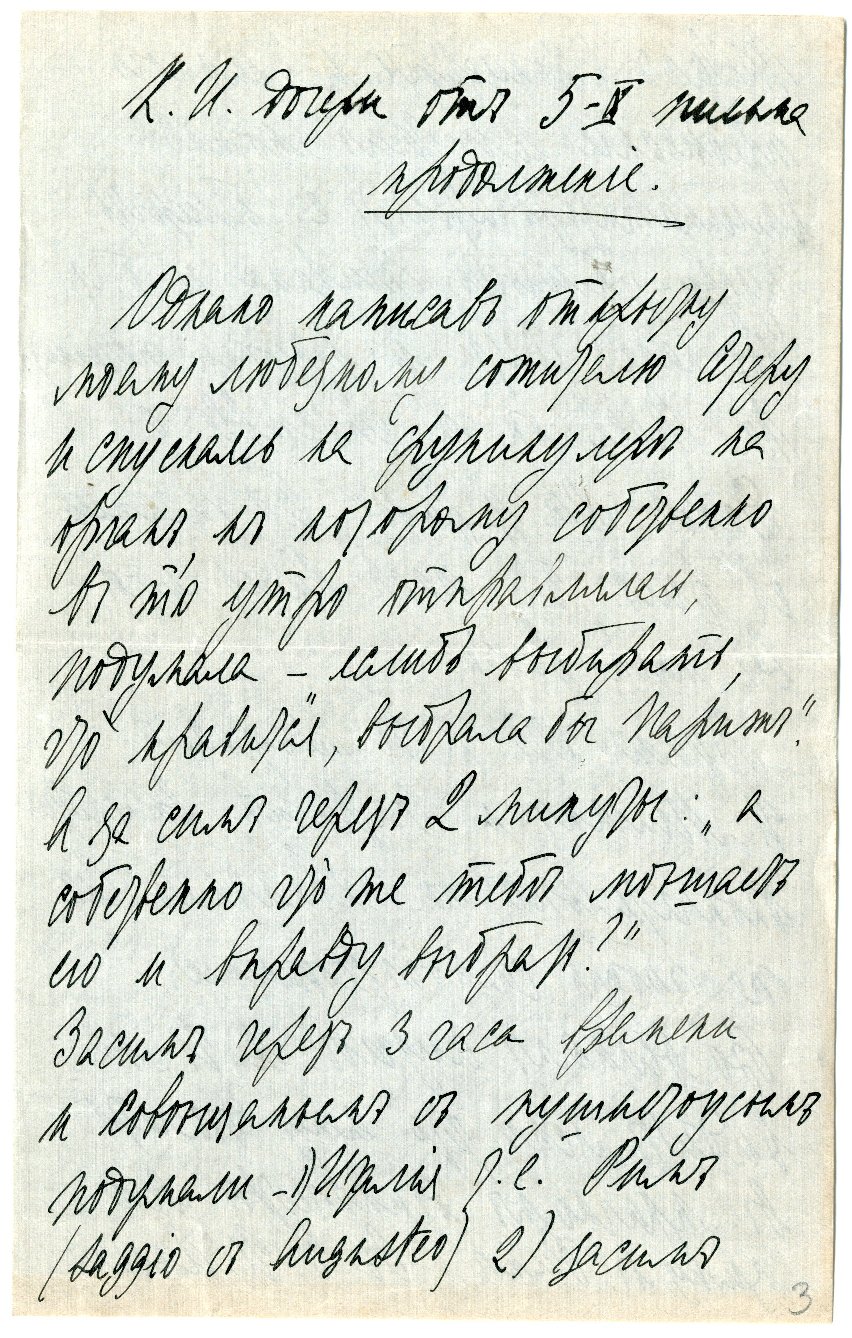 К. И. дочери отъ 5-IV письма
продолженiе.
Однако написавъ открытку
моему любезному сожителю Агеру
и спускаясь на фуникулерѣ на
органъ, къ которому собственно
въ то утро отправлялась,
подумала – еслибъ выбирать,
что нравится, выбрала бы Парижъ".
А за симъ черезъ 2 минуты: „а
собственно что же тебѣ мѣшаетъ
его и вправду выбрать?"
Засимъ черезъ 3 часа времени
и совѣщаньемъ съ
подумали – 1) Италiя т. е. Римъ
(saggio въ Augusteo) 2) засимъ
3